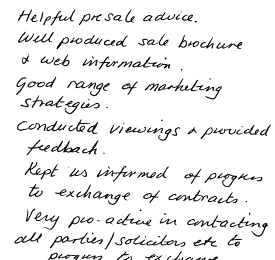 Helpful presale advice.
Well produced sale brochure
& web information.
Good range of marketing
strategies.
Conducted viewings & provided
feedback.
Kept us informed of progress
to exchange of contracts.
Very pro-active in contacting
all parties/solicitors etc to
progress to exchange